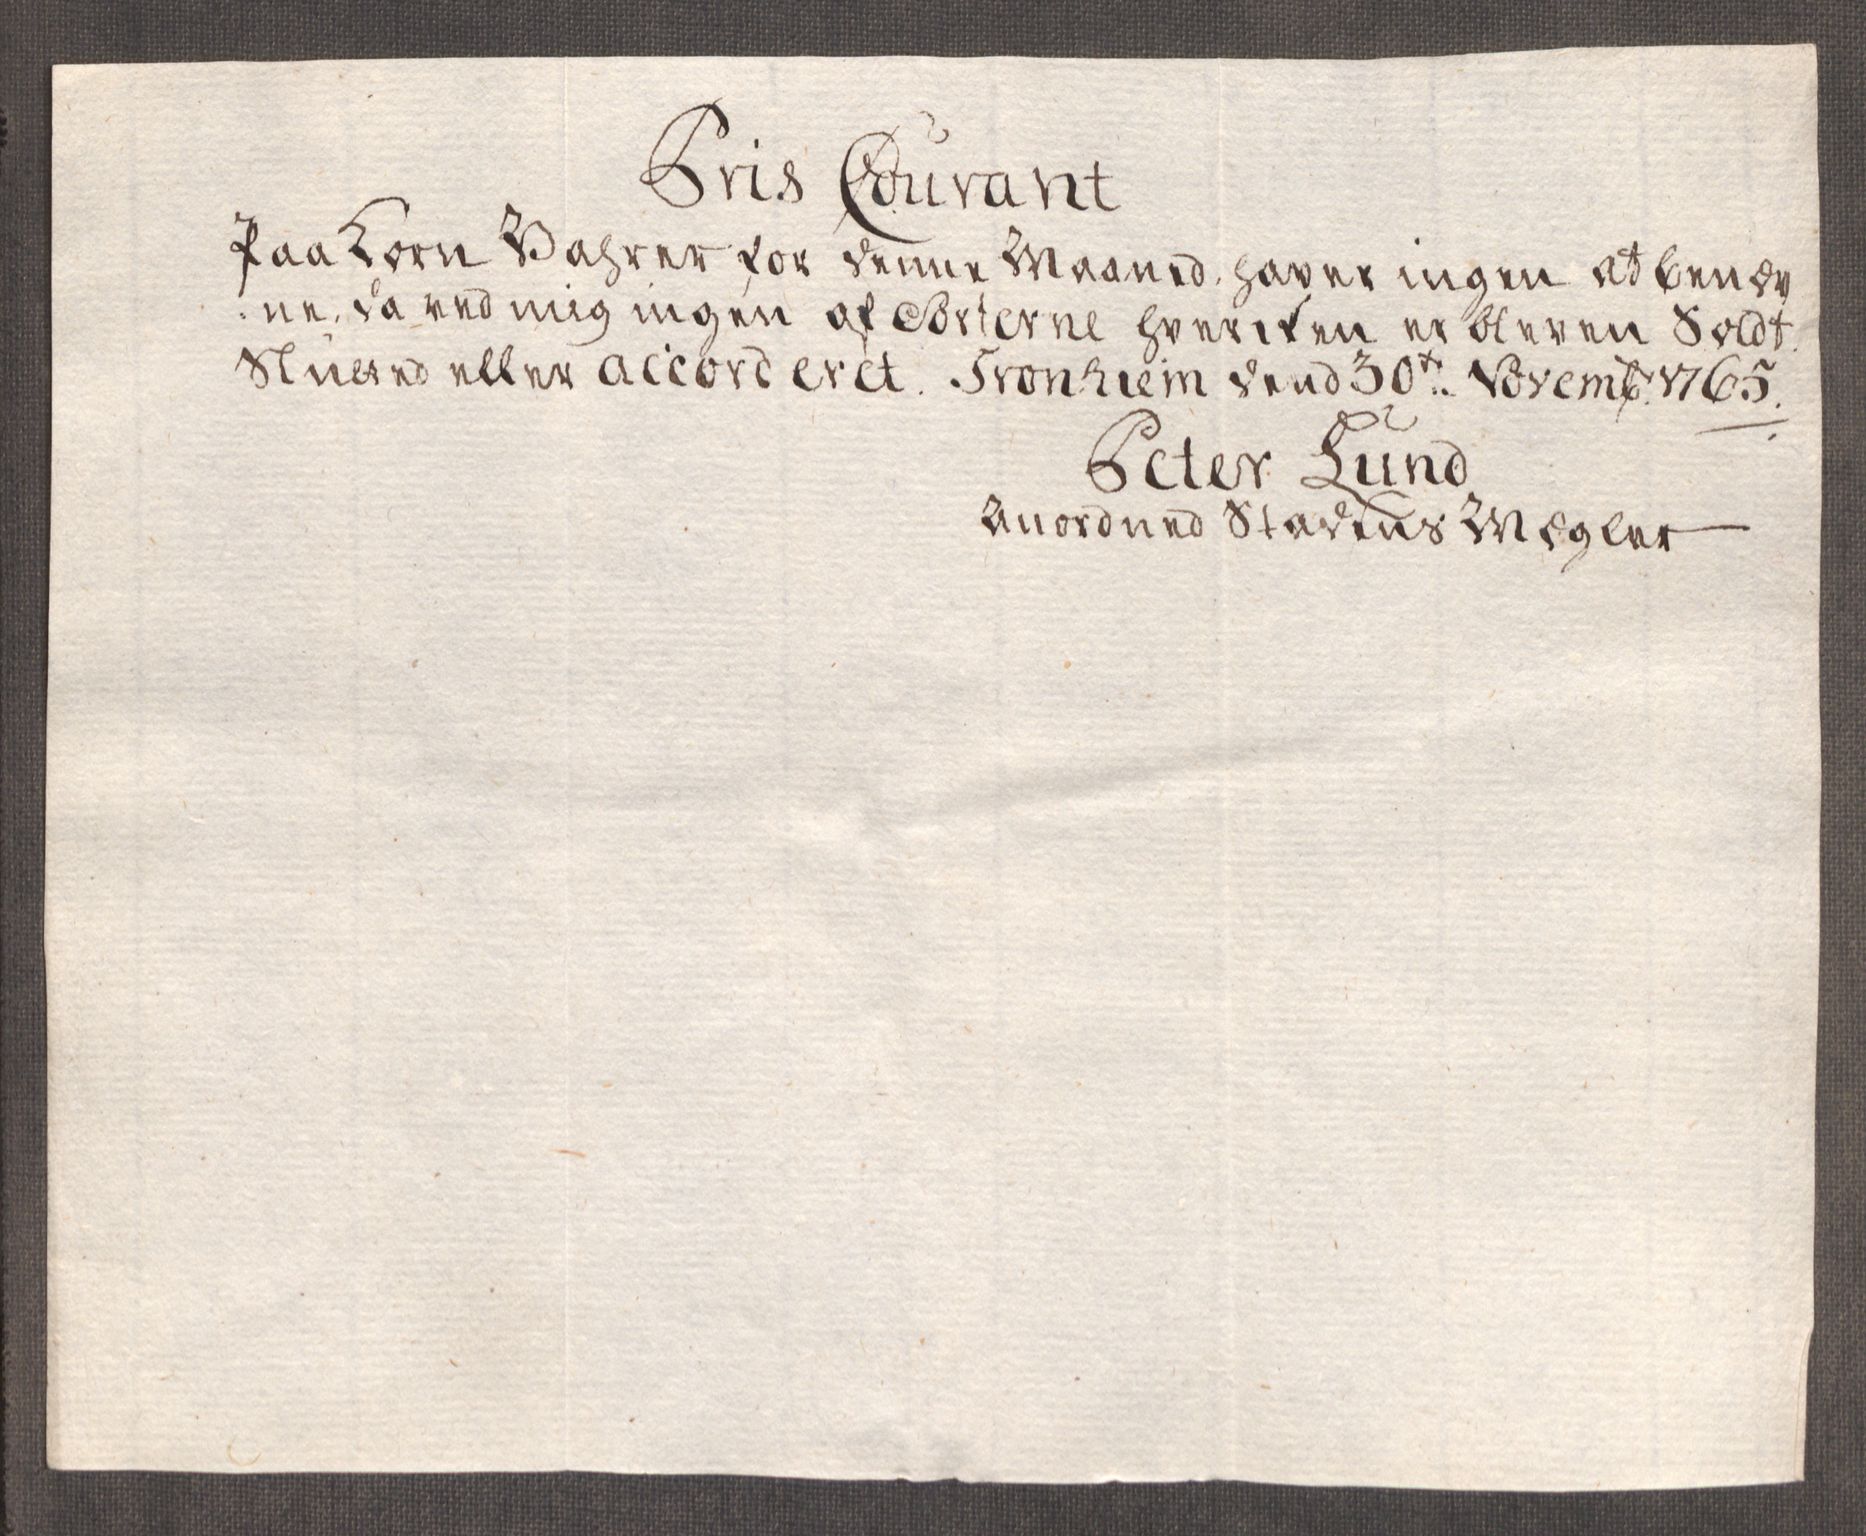 Pris Courant
Paa Korn Vahrer for denne Maaned, haver ingen at benæv
:ne, da ved mig ingen af Sorterne hverken er bleven Soldt.
Sluted eller accorderet. Tronhiem dend 30te. Novembr. 1765.
Peter Lund
Anordned Stadens Mægler